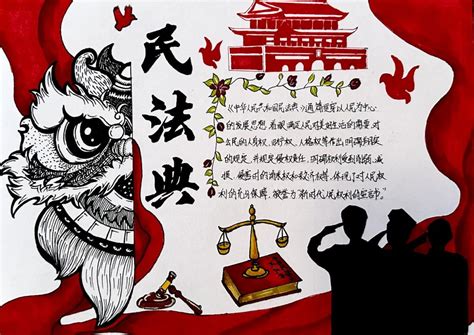 民法典
《中华人民共和国民法典》通篇贯穿以人民为中心
的发展思想,着眼满足人民对美好生活的需要,对
公民的人身权、财产权、人格权等作出明确翔实
的规定,并规定侵权责任,明确权利受到削弱、减
损、侵害时的请求权和救济权等,体现了对人民权
利的充分保障,被誉为“新时代人民权利的宣言书”。